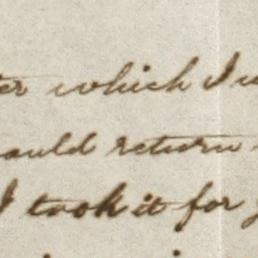 which I
would return
I took it for